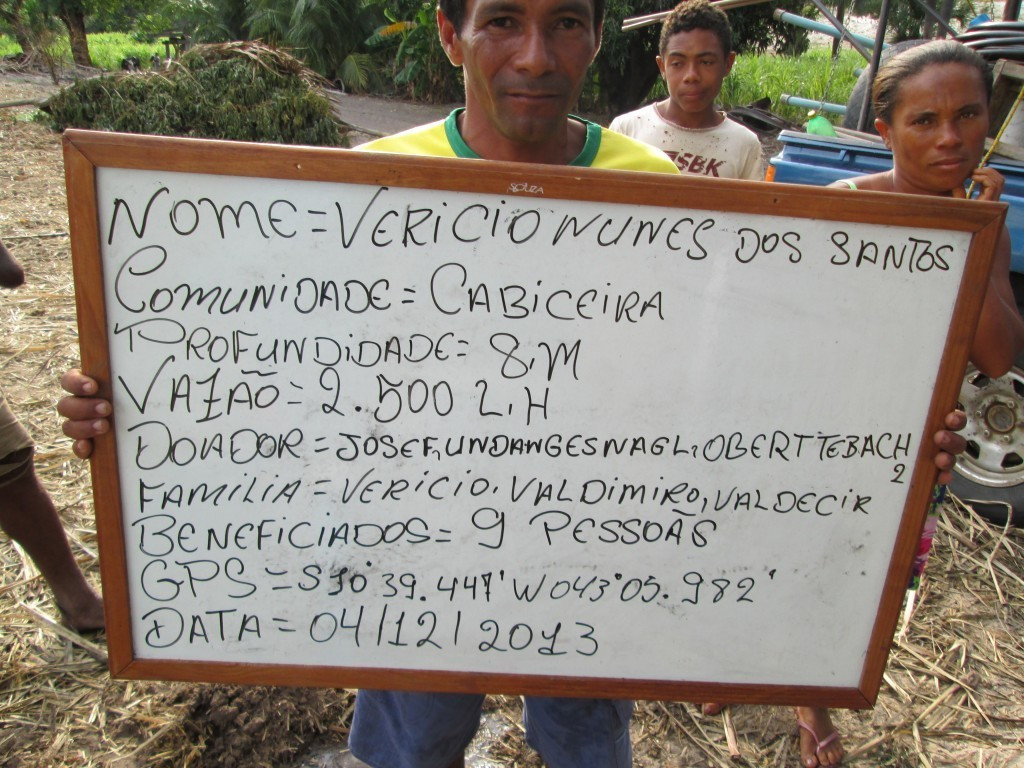 SOUZA
NOME = VERICIO NUNES DOS SANTOS
COMUNIDADE = CABICEIRA
PROFUNDIDADE = 8.M
VAZÃO = 2.500 L.H
DOADOR = JOSEF, UNDANGESNAGL, OBERTTEBACH
2
FAMILIA = VERICIO, VALDIMIRO, VALDECIR
BENEFICIADOS = 9 PESSOAS
GPS = S10°39.447' W043°05.982'
DATA = 04/12/2013
SBK